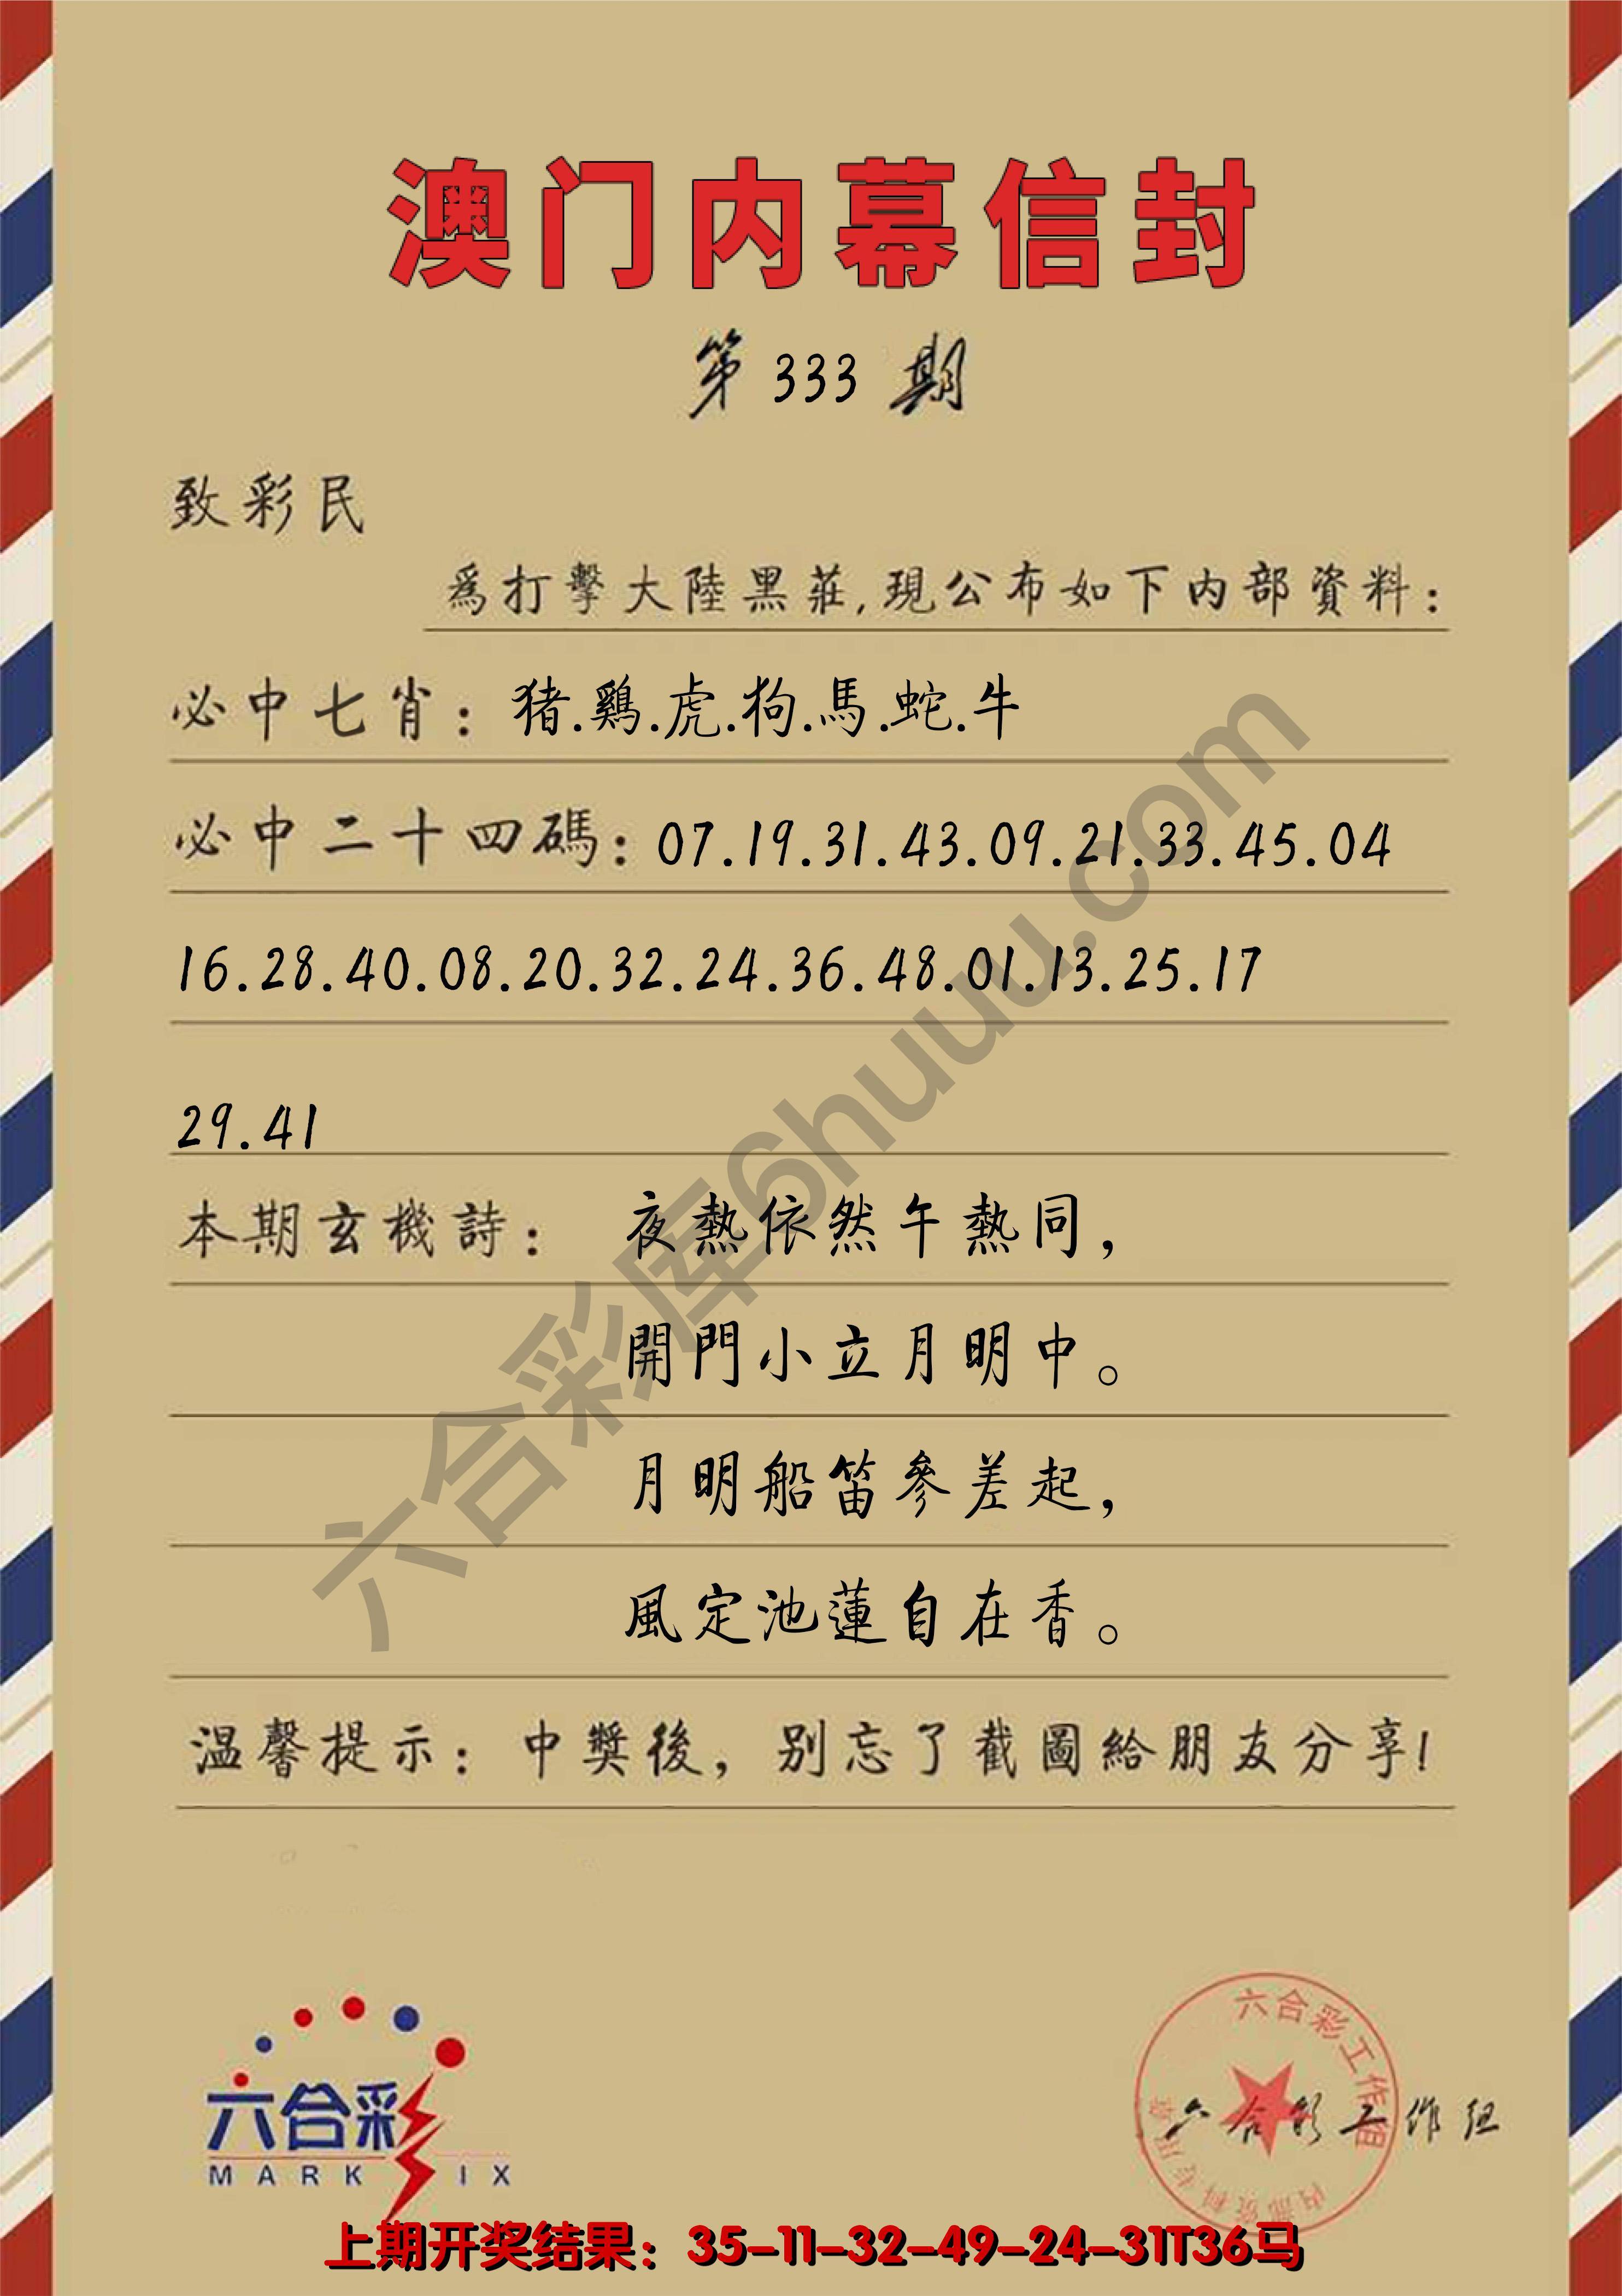 澳门内幕信封
第 333 期
致彩民
爲打擊大陸黑莊,現公布如下内部資料:
必中七肖: 猪.鷄.虎.狗.馬.蛇.牛
必中二十四碼: 07.19.31.43.09.21.33.45.04
16.28.40.08.20.32.24.36.48.01.13.25.17
29.41
本期玄機詩: 夜熱依然午熱同,
開門小立月明中。
月明船笛參差起,
風定池蓮自在香。
温馨提示: 中獎後, 别忘了截圖給朋友分享!
六合彩库6huuu.com
六合彩
MARK SIX
六合彩工作组
内部资料专用章
六合彩工作组
上期开奖结果: 35-11-32-49-24-31T36马